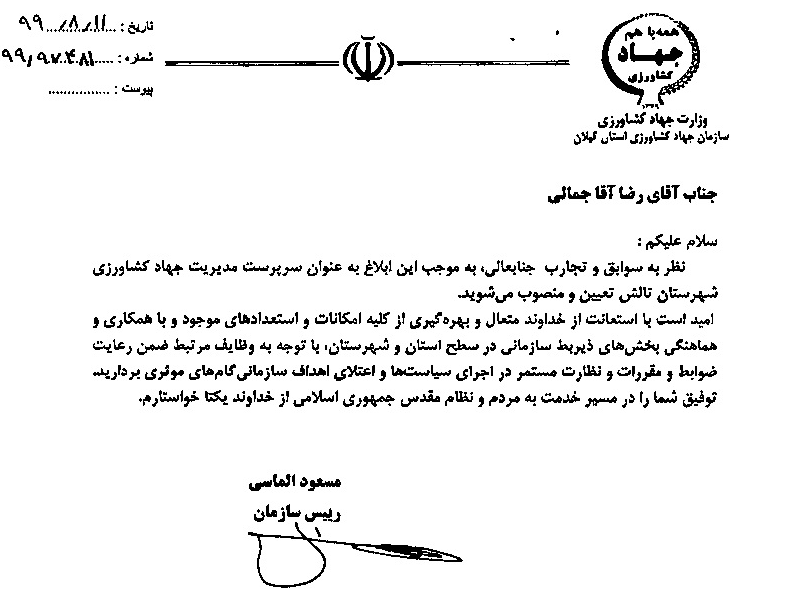 همه با هم
جهاد
کشاورزی
۱۳۷۹
وزارت جهاد کشاورزی
سازمان جهاد کشاورزی استان گیلان
تاریخ : ۹۹/۸/۱۱
شماره : ۹۹/۹۷۴۸۱
پیوست : ................
جناب آقای رضا آقا جمالی
سلام علیکم :
نظر به سوابق و تجارب جنابعالی، به موجب این ابلاغ به عنوان سرپرست مدیریت جهاد کشاورزی
شهرستان تالش تعیین و منصوب می‌شوید.
امید است با استعانت از خداوند متعال و بهره‌گیری از کلیه امکانات و استعدادهای موجود و با همکاری و
هماهنگی بخش‌های ذیربط سازمانی در سطح استان و شهرستان، با توجه به وظایف مرتبط ضمن رعایت
ضوابط و مقررات و نظارت مستمر در اجرای سیاست‌ها و اعتلای اهداف سازمانی گام‌های موثری بردارید.
توفیق شما را در مسیر خدمت به مردم و نظام مقدس جمهوری اسلامی از خداوند یکتا خواستارم.
مسعود الماسی
رییس سازمان